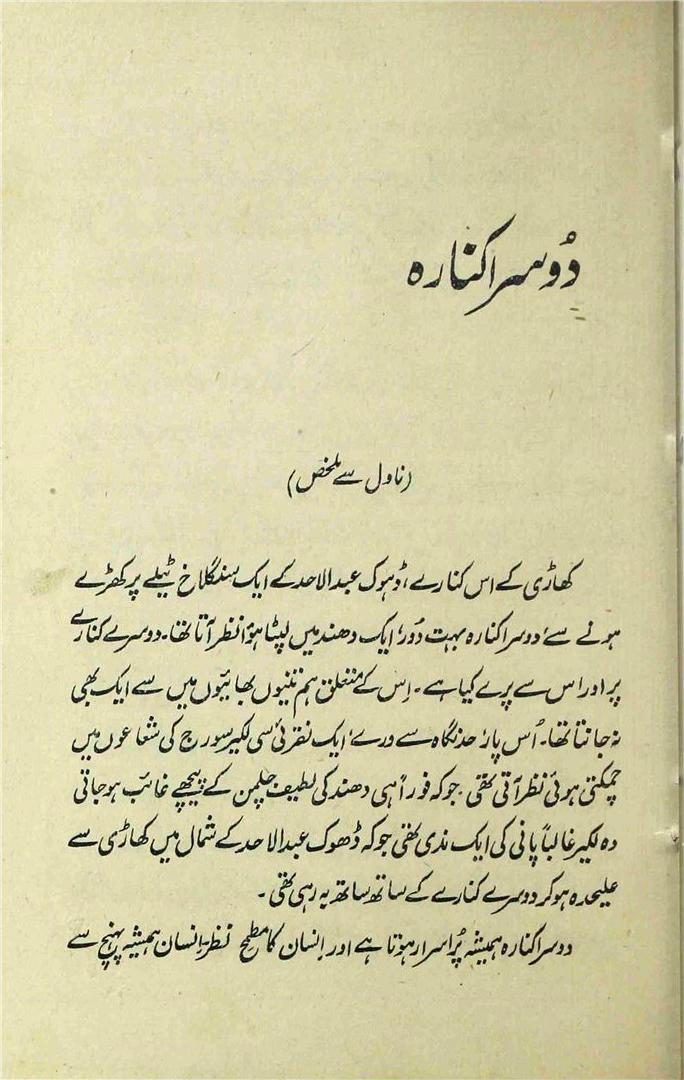 دُوسرا کنارہ
(ناول سے ملخص)
کھاڑی کے اس کنارے، ڈہوک عبدالاحد کے ایک سنگلاخ ٹیلے پر کھڑے
ہونے سے، دوسرا کنارہ بہت دُور، ایک دھند میں لپٹا ہوُا نظر آتا تھا۔ دوسرے کنارے
پر اور اس سے پرے کیا ہے۔ اِس کے متعلق ہم تینوں بھائیوں میں سے ایک بھی
نہ جانتا تھا۔ اُس پار، حد نگاہ سے ورے، ایک نقرئی سی لکیر سورج کی شعاعوں میں
چمکتی ہوئی نظر آتی تھی جو کہ فوراً ہی دھند کی لطیف چلمن کے پیچھے غائب ہو جاتی
وہ لکیر غالباً پانی کی ایک ندی تھی جو کہ ڈھوک عبدالاحد کے شمال میں کھاڑی سے
علیحدہ ہو کر دوسرے کنارے کے ساتھ ساتھ بہ رہی تھی۔
دوسرا کنارہ ہمیشہ پُراسرار ہوتا ہے اور اِنسان کا مطمح نظر۔ اِنسان ہمیشہ پہنچ سے